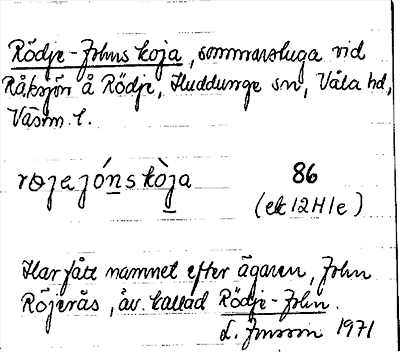 Rödje-Johns koja, sommarstuga vid
Råksjön å Rödje, Huddunge sn, Våla hd,
Väsm. l.
røjejónskòja 86
(ek 12H1e)
Har fått namnet efter ägaren, John
Röjerås, äv. kallad Rödje-John.
L. Jonsson 1971